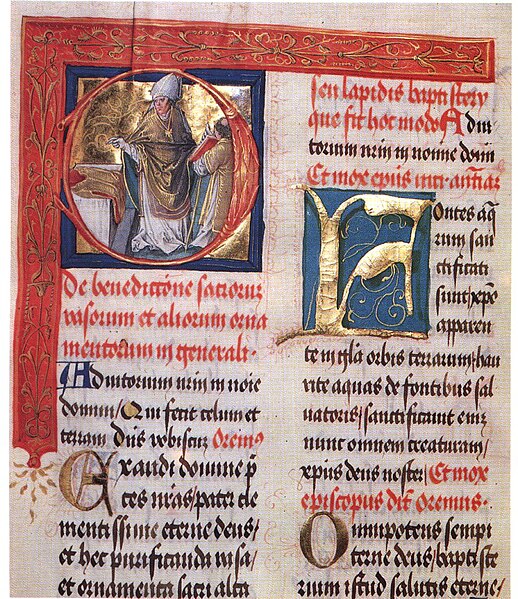 De benedictiõne sacrorum
vasorum et aliorum orna
mentorum in generali.
Adiutorium nr̃m in noĩe
domini / Qui fecit celum et
terram Dñs vobiscum Oremus
Exaudi domine p̃
ces nr̃as / pater cle
mentissime eterne deus /
et hec purificanda vasa /
et ornamenta sacri alta
seu lapidis baptistery
que fit hoc modo Adiu
torium nr̃m in nomine domĩ
Et mox ep̃us
Fontes aq̃
rum san
ctificati
sunt xp̃e
apparen
te in gl̃ia orbis terrarum / hau
rite aquas de fontibus sal
uatoris / sanctificauit enim
nunc omnem creaturam /
xp̃us deus noster / Et mox
episcopus dic̃ Oremus.
Omnipotens sempi
terne deus / baptiste
rium istud salutis eterne /